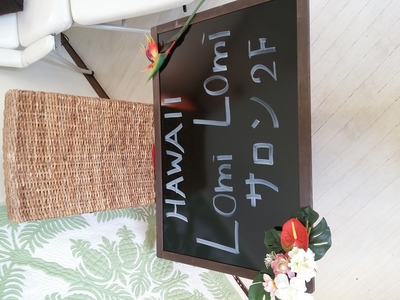 HAWAII
Lomi Lomi
サロン 2F